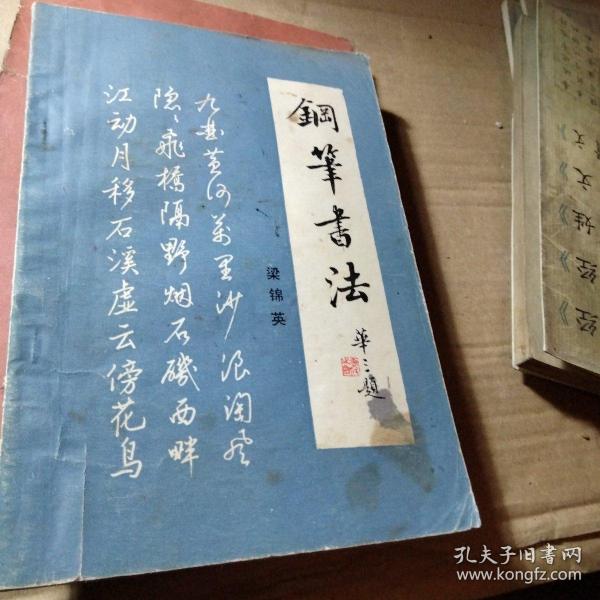 鋼筆書法
梁锦英
華三題
九曲黄河萬里沙浪淘風
隐隐飛橋隔野烟石磯西畔
江动月移石溪虚云傍花鸟
孔夫子旧书网
www.kongfz.com